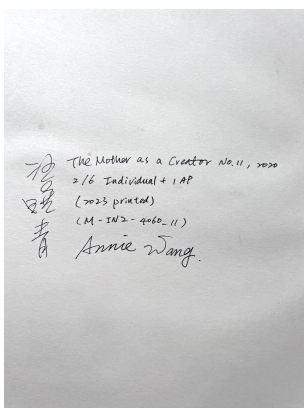 青
The Mother as a Creator No.11, 2020
2/6 Individual + 1 AP
(2023 printed)
(M-IN2-4060_11)
Annie Wang.